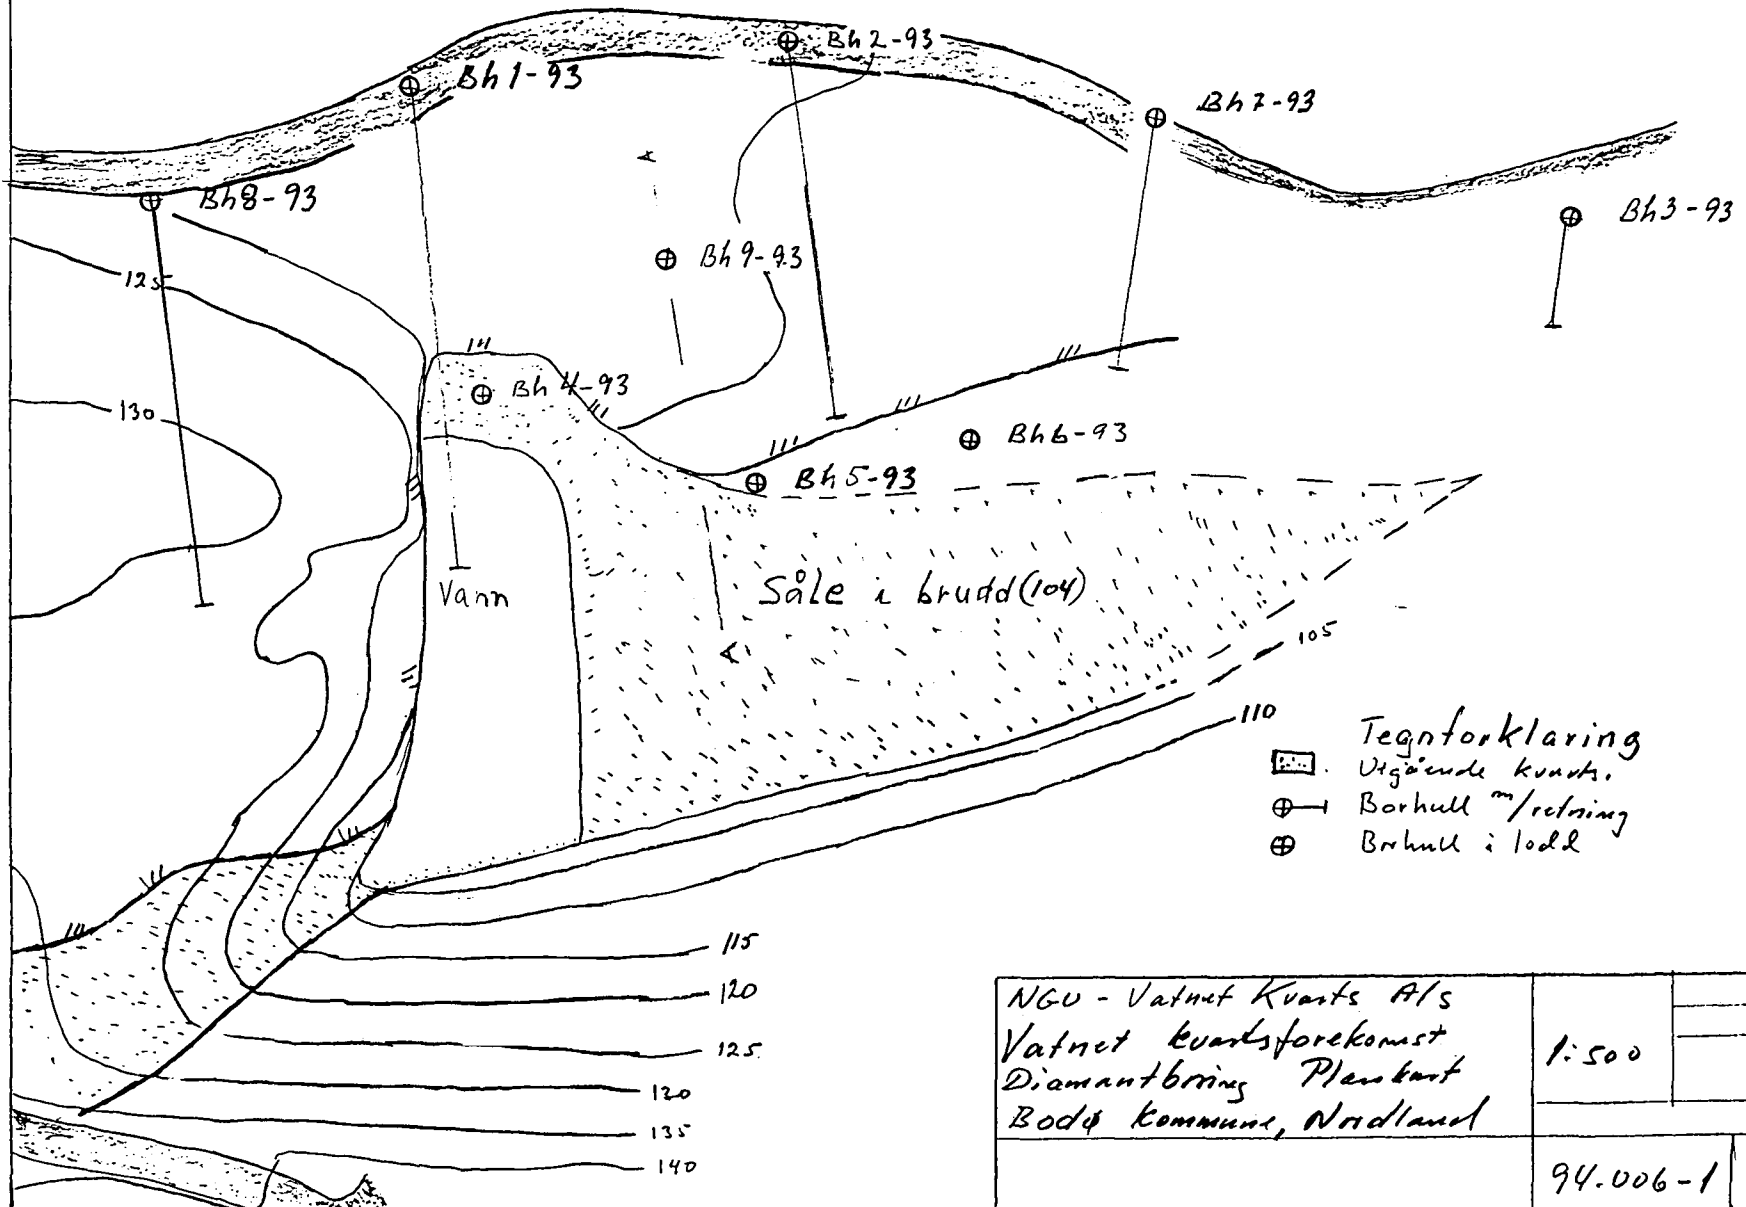 Bh 2-93
Bh 1-93
Bh 7-93
Bh 8-93
Bh 3-93
A
Bh 9-93
125
130
Bh 4-93
Bh 6-93
Bh 5-93
Vann
Såle i brudd (104)
A
105
110
Tegnforklaring
Utgående kvarts.
Borhull m/retning
Borhull i lodd
115
120
125
130
135
140
NGU - Vatnet Kvarts A/S
Vatnet kvartsforekomst
Diamantboring Plankart
Bodø kommune, Nordland
1:500
94.006-1